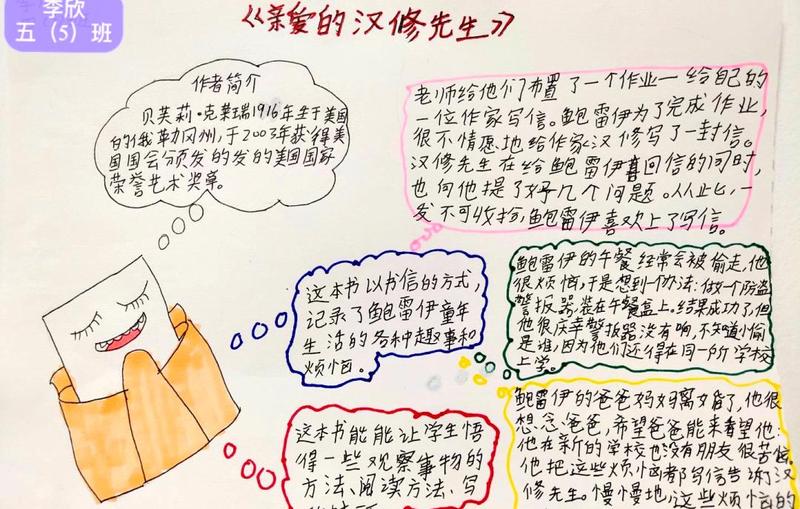 李欣
五（5）班
《亲爱的汉修先生》
作者简介
贝芙莉·克莱瑞1916年生于美国
的俄勒冈州，于2003年获得美
国国会颁发的发的美国国家
荣誉艺术奖章。
老师给他们布置了一个作业一给自己的
一位作家写信。鲍雷伊为了完成作业，
很不情愿地给作家汉修写了一封信。
汉修先生在给鲍雷伊回信的同时，
也向他提了好几个问题。从此，一
发不可收拾，鲍雷伊喜欢上了写信。
这本书以书信的方式，
记录了鲍雷伊童年
生活的各种趣事和
烦恼。
鲍雷伊的午餐经常会被偷走，他
很烦恼，于是想到个办法：做个防盗
警报器，装在午餐盒上。结果成功了，但
他很庆幸警报器没有响，不知道小偷
是谁，因为他们还得在同一所学校
上学。
这本书能能让学生悟
得一些观察事物的
方法、阅读方法、写
鲍雷伊的爸爸妈妈离婚了，他很
想念爸爸，希望爸爸能来看望他；
他在新的学校也没有朋友很苦恼。
他把这些烦恼都写信告诉汉
修先生。慢慢地，这些烦恼的